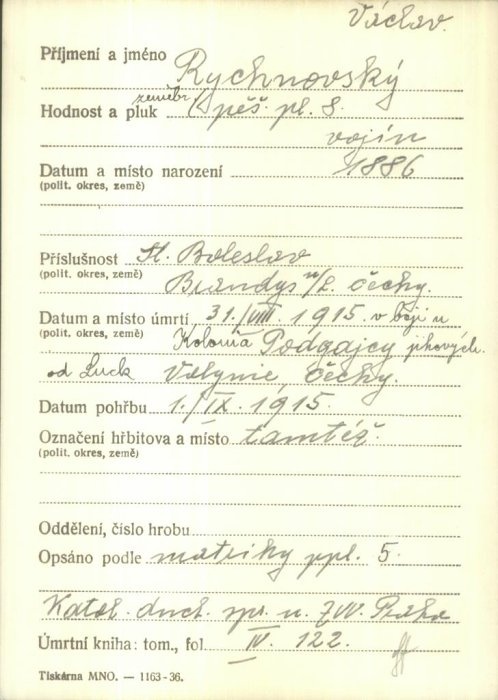 Václav.
Příjmení a jméno Rychnovský
Hodnost a pluk zeměbr. pěš. pl. 8.
vojín
Datum a místo narození 1886
(polit. okres, země)
Příslušnost St. Boleslav
(polit. okres, země) Brandýs n/L. Čechy.
Datum a místo úmrtí 31./VIII. 1915. v boji u
(polit. okres, země) Kolonia Podgajcy
od Luck Volynie, Čechy.
Datum pohřbu 1./IX. 1915.
Označení hřbitova a místo tamtéž.
(polit. okres, země)
Oddělení, číslo hrobu
Opsáno podle matriky ppl. 5.
Katol. duch. spr. u ZVV. Praha
Úmrtní kniha: tom., fol. IV. 122.
Tiskárna MNO. — 1163-36.